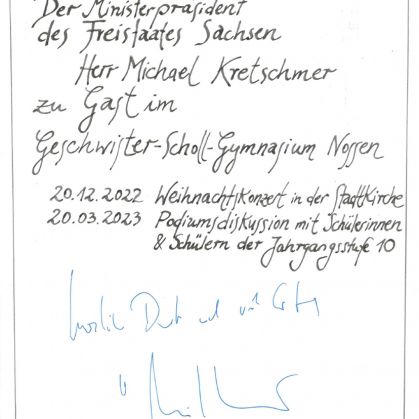 Der Ministerpräsident
des Freistaates Sachsen
Herr Michael Kretschmer
zu Gast im
Geschwister-Scholl-Gymnasium Nossen
20.12.2022 Weihnachtskonzert in der Stadtkirche
20.03.2023 Podiumsdiskussion mit Schülerinnen
& Schülern der Jahrgangsstufe 10
herzlich Dank und